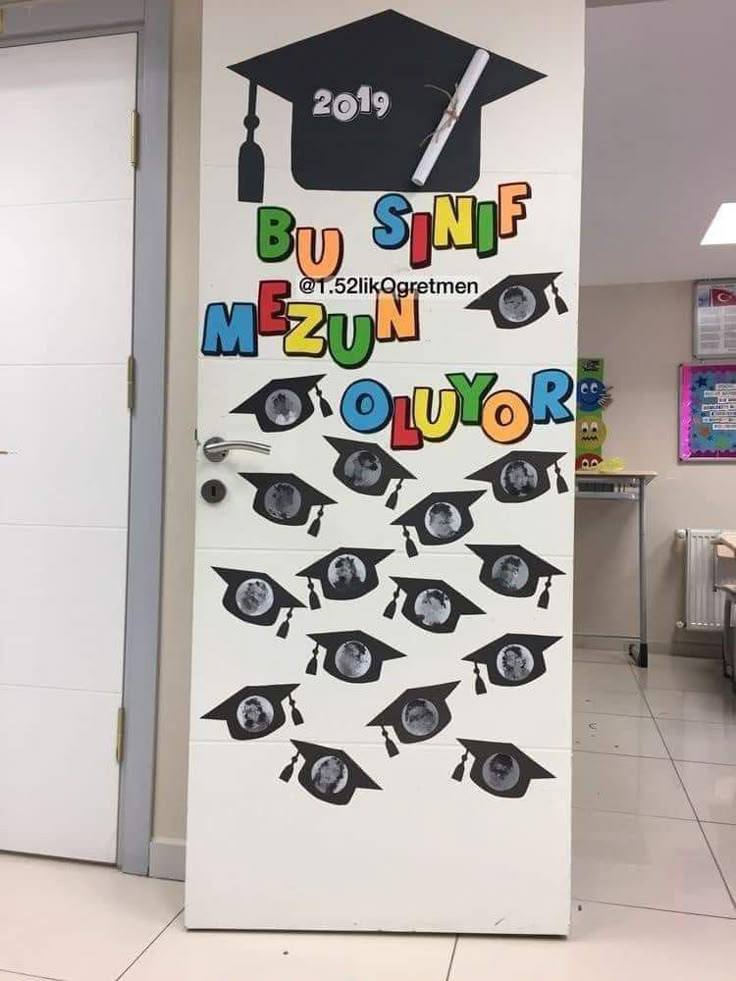 2019
BU SINIF
@1.52likOgretmen
MEZUN
OLUYOR